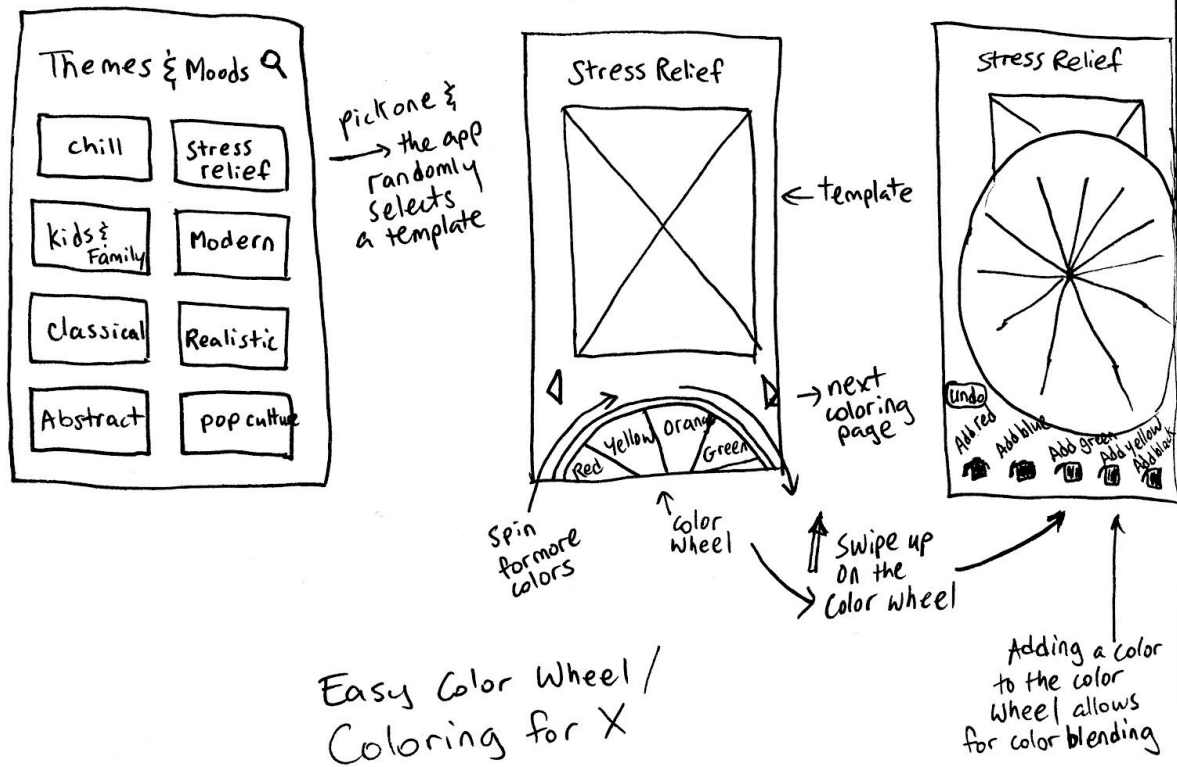 Themes & Moods
chill
Stress
relief
Kids &
Family
Modern
Classical
Realistic
Abstract
pop culture
pick one &
the app
randomly
selects
a template
Stress Relief
template
next
coloring
page
Red
Yellow
Orange
Green
spin
for more
colors
Color
wheel
Swipe up
on the
Color wheel
Stress Relief
undo
Add red
Add blue
Add green
Add yellow
Add black
Adding a color
to the color
wheel allows
for color blending
Easy Color Wheel /
Coloring for X